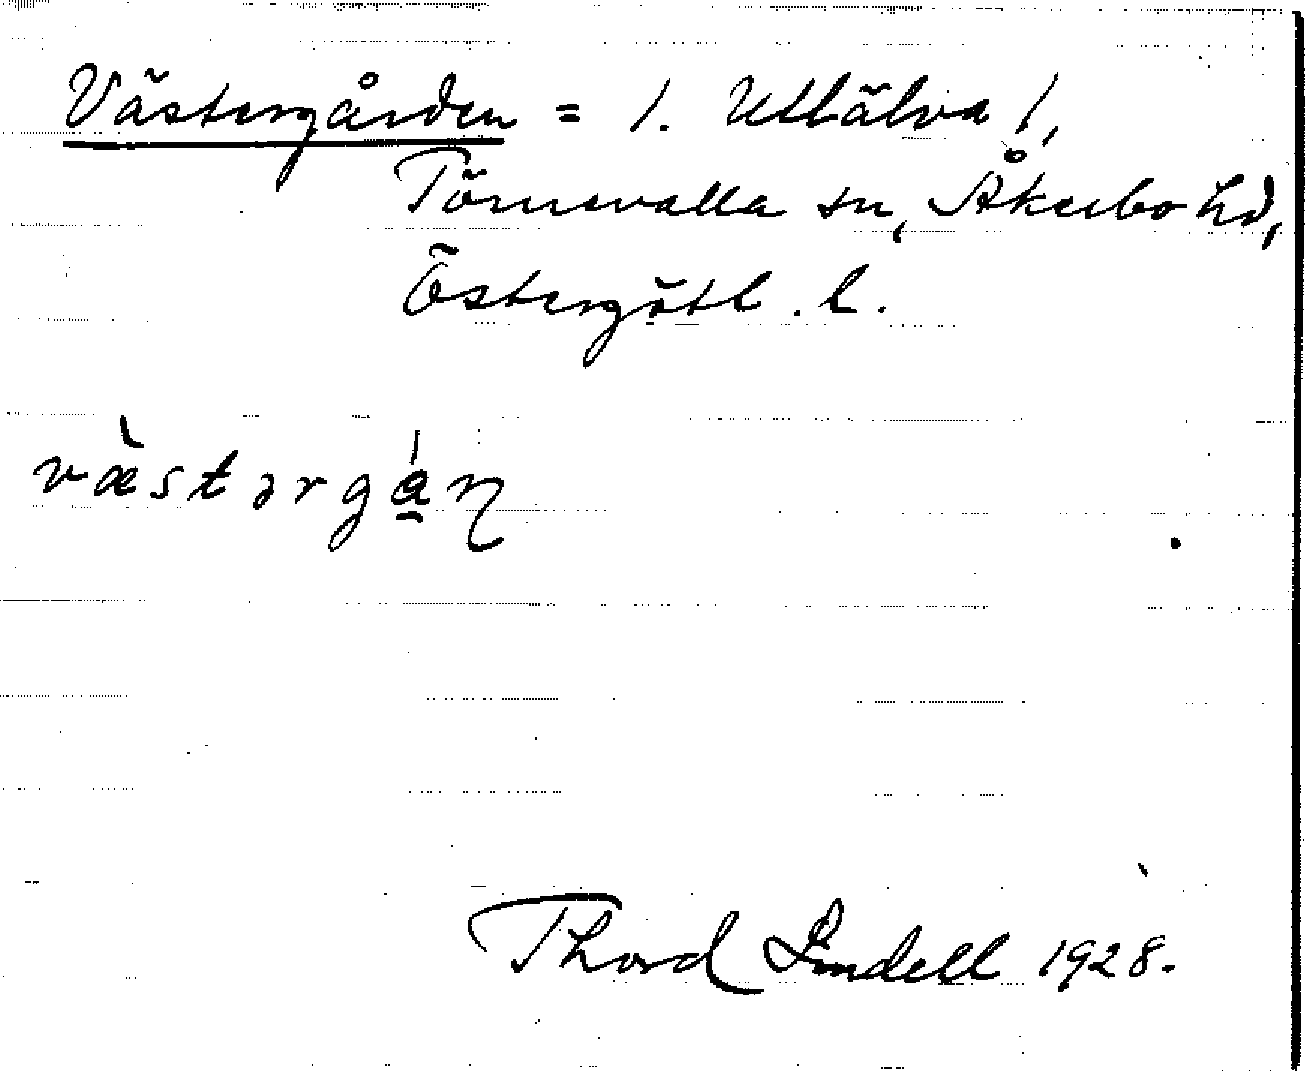 Västergården = 1. Utlälva 1,
Törnevalla sn, Åkerbo hd,
Östergötl. l.
væ̀stərgá̱ɳ
Thord Lindell 1928.